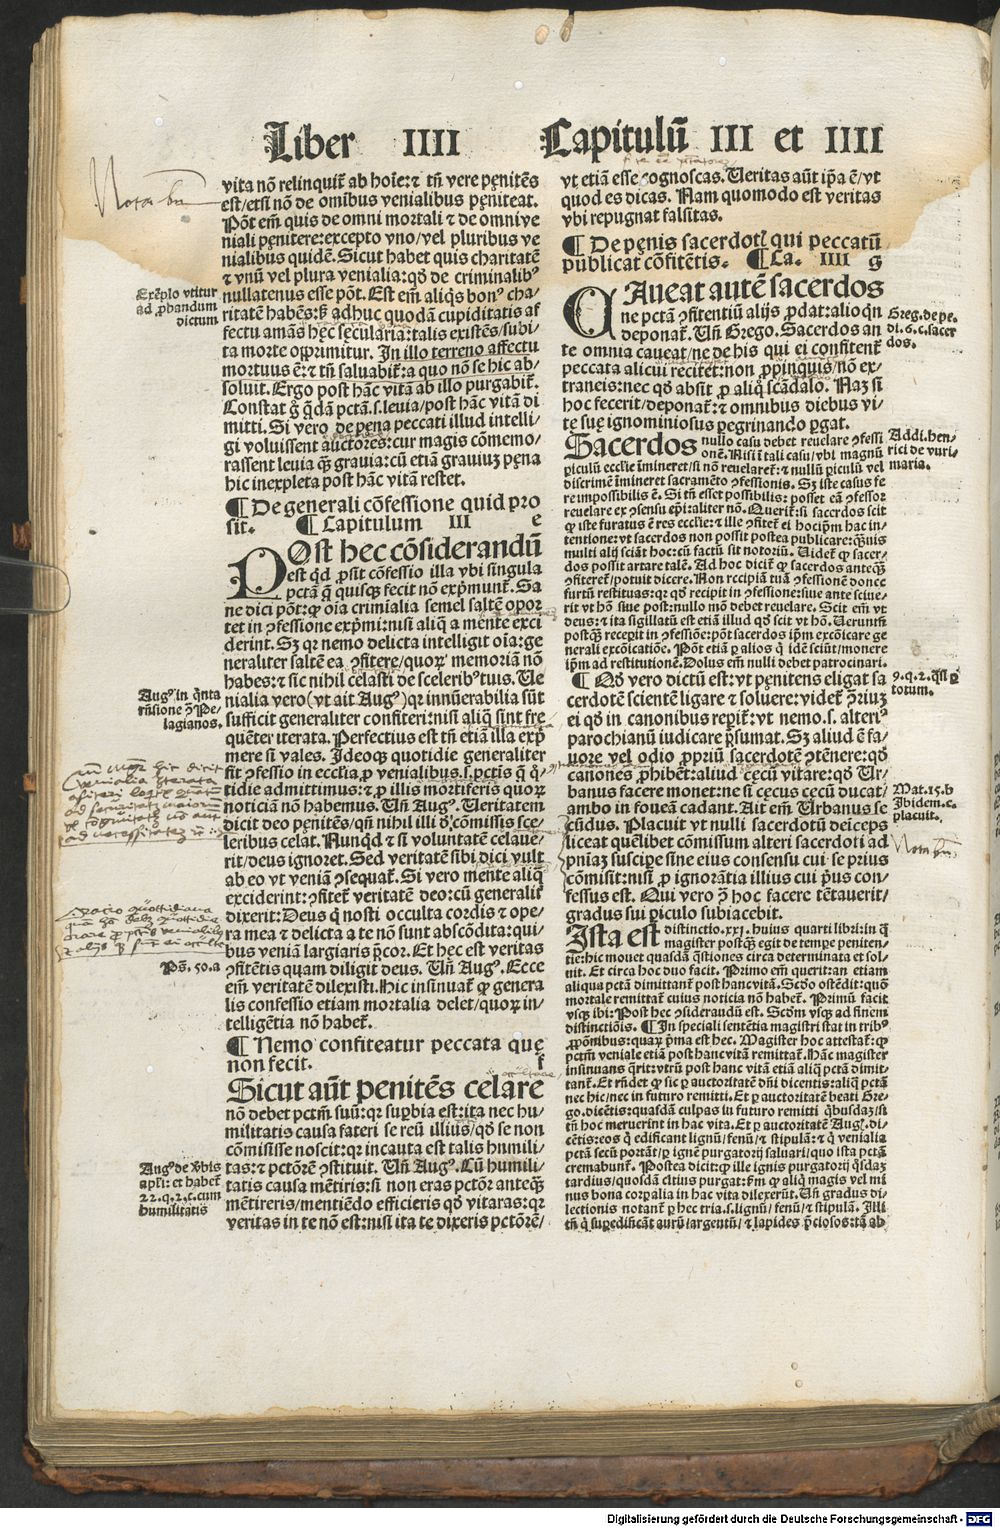 Liber IIII
Capitulū III et IIII
Nota bn̄
vita nō relinquit᷑ ab hoīe: ⁊ tn̄ vere pęnitēs
est/etsi nō de omībus venialibus pęniteat.
Pōt em̄ quis de omni mortali ⁊ de omni ve
niali pęnitere: excepto vno/vel pluribus ve
nialibus quidē. Sicut habet quis charitatē
⁊ vnū vel plura venialia: qđ de criminalibꝰ
nullatenus esse pōt. Est em̄ aliq̄s bonꝰ cha/
ritatē habēs: sꝫ adhuc quodā cupiditatis af
fectu amās hęc sęcularia: talis existēs/subi/
ta morte opprimitur. In illo terreno affectu
mortuus ē: ⁊ tn̄ saluabit᷑: a quo nō se hic ab/
soluit. Ergo post hāc vitā ab illo purgabit᷑.
Constat g̊ q̄dā pctā.s.leuia/post hāc vitā di
mitti. Si vero de pęna peccati illud intelli/
gi voluissent auctores: cur magis cōmemo/
rassent leuia q̄ꝫ grauia: cū etiā grauiuꝫ pęna
hic inexpleta post hāc vitā restet.
Exēplo vtitur
ad ꝓbandum
dictum
¶ De generali cōfessione quid pro
sit. ¶ Capitulum III e
POst hec cōsiderandū
est qđ ꝓsit cōfessio illa vbi singula
pctā q̄ quisqꝫ fecit nō exprimunt᷑. Sa
ne dici pōt: ꝙ oīa crimīalia semel saltē opor
tet in ꝯfessione exprimi: nisi aliq̄ a mente exci
derint. Sꝫ qꝛ nemo delicta intelligit oīa: ge
neraliter saltē ea ꝯfitere/quoꝝ memoriam nō
habes: ⁊ sic nihil celasti de sceleribꝰ tuis. Ue
nialia vero (vt ait Augꝰ) qꝛ innūerabilia sūt
sufficit generaliter confiteri: nisi aliq̄ sint fre
quēter iterata. Perfectius est tn̄ etiā illa exp̄
mere si vales. Ideoqꝫ quotidie generaliter
fit ꝯfessio in ecclīa ꝓ venialibus.s.pctis q̄ q̄/
tidie admittimus: ⁊ ꝓ illis mortiferis quoꝝ
noticiā nō habemus. Un̄ Augꝰ. Ueritatem
dicit deo pęnitēs/qn̄ nihil illi đ cōmissis sce/
leribus celat. Nunqđ ⁊ si voluntatē celaue/
rit/deus ignoret. Sed veritatē sibi dici vult
ab eo vt veniā ꝯsequat᷑. Si vero mente aliq̄
exciderint: ꝯfitet᷑ veritatē deo: cū generalit᷑
dixerit: Deus q̄ nosti occulta cordis ⁊ ope/
ra mea ⁊ delicta a te nō sunt abscōdita: qui/
bus veniā largiaris p̄cor. Et hec est veritas
ꝯfitētis quam diligit deus. Un̄ Augꝰ. Ecce
em̄ veritatē dilexisti. Hic insinuat᷑ ꝙ genera
lis confessio etiam mortalia delet/quoꝝ in/
telligētia nō habet᷑.
Augꝰ in q̄nta
rn̄sione ꝯ Pe/
lagianos.
Ps̄. 50.a
¶ Nemo confiteatur peccata quę
non fecit. f
Sicut aūt penitēs celare
nō debet pctm̄ suū: qꝛ suꝑbia est: ita nec hu/
militatis causa fateri se reū illius/qđ se non
cōmisisse noscit: qꝛ incauta est talis humili/
tas: ⁊ pctōrē ꝯstituit. Un̄ Augꝰ. Cū humili/
tatis causa mētiris: si non eras pctōr anteq̄ꝫ
mētireris/mentiēdo efficieris qđ vitaras: qꝛ
veritas in te nō est: nisi ita te dixeris pctōrē/
Augꝰ de v̓bis
apłi: et habet᷑
22.q.2.c.cum
humilitatis
vt etiā esse cognoscas. Ueritas aūt ip̄a ē/vt
quod es dicas. Nam quomodo est veritas
vbi repugnat falsitas.
¶ De pęnis sacerdotꝭ qui peccatū
publicat cōfitētis. ¶ Ca. IIII g
CAueat autē sacerdos
ne pctā ꝯfitentiū alijs ꝓdat: alioqn
deponat᷑. Un̄ Grego. Sacerdos an
te omnia caueat/ne de his qui ei confitent᷑
peccata alicui recitet: non ꝓpinquis/nō ex/
traneis: nec qđ absit ꝓ aliq̄ scādalo. Naꝫ si
hoc fecerit/deponat᷑: ⁊ omnibus diebus vi/
te suę ignominiosus peregrinando ꝑgat.
Greg. de pe.
di.6.c.sacer
dos.
Sacerdos nullo casu debet reuelare ꝯfessi
onē. Nisi ī tali casu/vbi magnū
ꝑiculū ecclīe īmineret/si nō reuelaret᷑: ⁊ nullū ꝑiculū vel
discrimē īmineret sacramēto ꝯfessionis. Sꝫ iste casus fe
re impossibilis ē. Si tn̄ esset possibilis: posset eā ꝯfessor
reuelare ex ꝯsensu ep̄i: aliter nō. Querit᷑: si sacerdos scit
ꝙ iste furatus ē res ecclīe: ⁊ ille ꝯfitet᷑ ei hocip̄m hac in/
tentione: vt sacerdos non possit postea publicare: q̄ꝫuis
multi alij sciāt hoc: cū factū sit notoriū. Uidet᷑ ꝙ sacer/
dos possit artare talē. Ad hoc dicit᷑ ꝙ sacerdos anteq̄ꝫ
ꝯfiteret᷑/potuit dicere. Non recipiā tuā ꝯfessionē donec
furtū restituas: qꝛ qđ recipit in ꝯfessione: siue ante sciue/
rit vt hō siue post: nullo mō debet reuelare. Scit em̄ vt
deus: ⁊ ita sigillatū est etiā illud qđ scit vt hō. Ueruntn̄
postq̄ꝫ recepit in ꝯfessiōe: pōt sacerdos ip̄m excōicare ge
nerali excōicatiōe. Pōt etiā ꝑ alios q̄ idē sciūt/monere
ip̄m ad restitutionē. Dolus em̄ nulli debet patrocinari.
Addi. hen/
rici de vuri/
maria.
¶ Qđ vero dictū est: vt pęnitens eligat sa
cerdotē scientē ligare ⁊ soluere: videt᷑ ꝯriuꝫ
ei qđ in canonibus reperit᷑: vt nemo.s.alteriꝰ
parochianū iudicare p̄sumat. Sꝫ aliud ē fa/
uore vel odio ꝓpriū sacerdotē ꝯtēnere: qđ
canones ꝓhibēt: aliud cęcū vitare: qđ Ur/
banus facere monet: ne si cęcus cęcū ducat/
ambo in foueā cadant. Ait em̄ Urbanus se
cūdus. Placuit vt nulli sacerdotū deīceps
liceat quēlibet cōmissum alteri sacerdoti ad
pniaꝫ suscipe sine eius consensu cui se prius
cōmisit: nisi ꝓ ignorātia illius cui p̄us con/
fessus est. Qui vero ꝯ hoc facere tētauerit/
gradus sui ꝑiculo subiacebit.
totum.
Mat.15.b
Ibidem.c.
placuit.
Nota bn̄
Ista est distinctio.xxj. huius quarti libri: in q̄
magister postq̄ꝫ egit de tempe peniten/
tie: hic mouet quasdā q̄stiones circa determinata et sol/
uit. Et circa hoc duo facit. Primo em̄ querit: an etiam
aliqua pctā dimittant᷑ post hanc vitā. Scđo ostēdit: quō
mortale remittat᷑ cuius noticia nō habet᷑. Primū facit
vsqꝫ ibi: Post hec ꝯsiderandū est. Scđm vsqꝫ ad finem
distinctiōis. ¶ In speciali sententia magistri stat in tribꝰ
ꝓpōnibus: quaꝝ p̄ma est hec. Magister hoc attestat᷑: ꝙ
pctm̄ veniale etiā post hanc vitā remittat᷑. Hāc magister
insinuans q̄rit: vtrū post hanc vitā etiā aliq̄ pctā dimit/
tant᷑. Et rn̄det ꝙ sic ꝑ auctoritatē dn̄i dicentis: aliq̄ pctā
nec hic/nec in futuro remitti. Et ꝑ auctoritatē beati Gre/
go. dicētis: quasdā culpas in futuro remitti q̄busdaꝫ/si
tn̄ hoc meruerint in hac vita. Et ꝑ auctoritatē Augꝰ. di/
cētis: eos q̄ edificant lignū/fenū/⁊ stipulā: ⁊ q̄ venialia
pctā secū portāt/ꝑ ignē purgatorij saluari/quo ista pctā
cremabunt᷑. Postea dicit: ꝙ ille ignis purgatorij q̄sdaꝫ
tardius/quosdā citius purgat: sꝫm ꝙ aliq̄ magis vel mi
nus bona corꝑalia in hac vita dilexerūt. Un̄ gradus di/
lectionis notant᷑ ꝑ hec tria.s.lignū/fenū/⁊ stipulā. Illi
tn̄ q̄ suꝑedificāt aurū/argentū/⁊ lapides p̄ciosos: tā ab
Digitalisierung gefördert durch die Deutsche Forschungsgemeinschaft - DFG